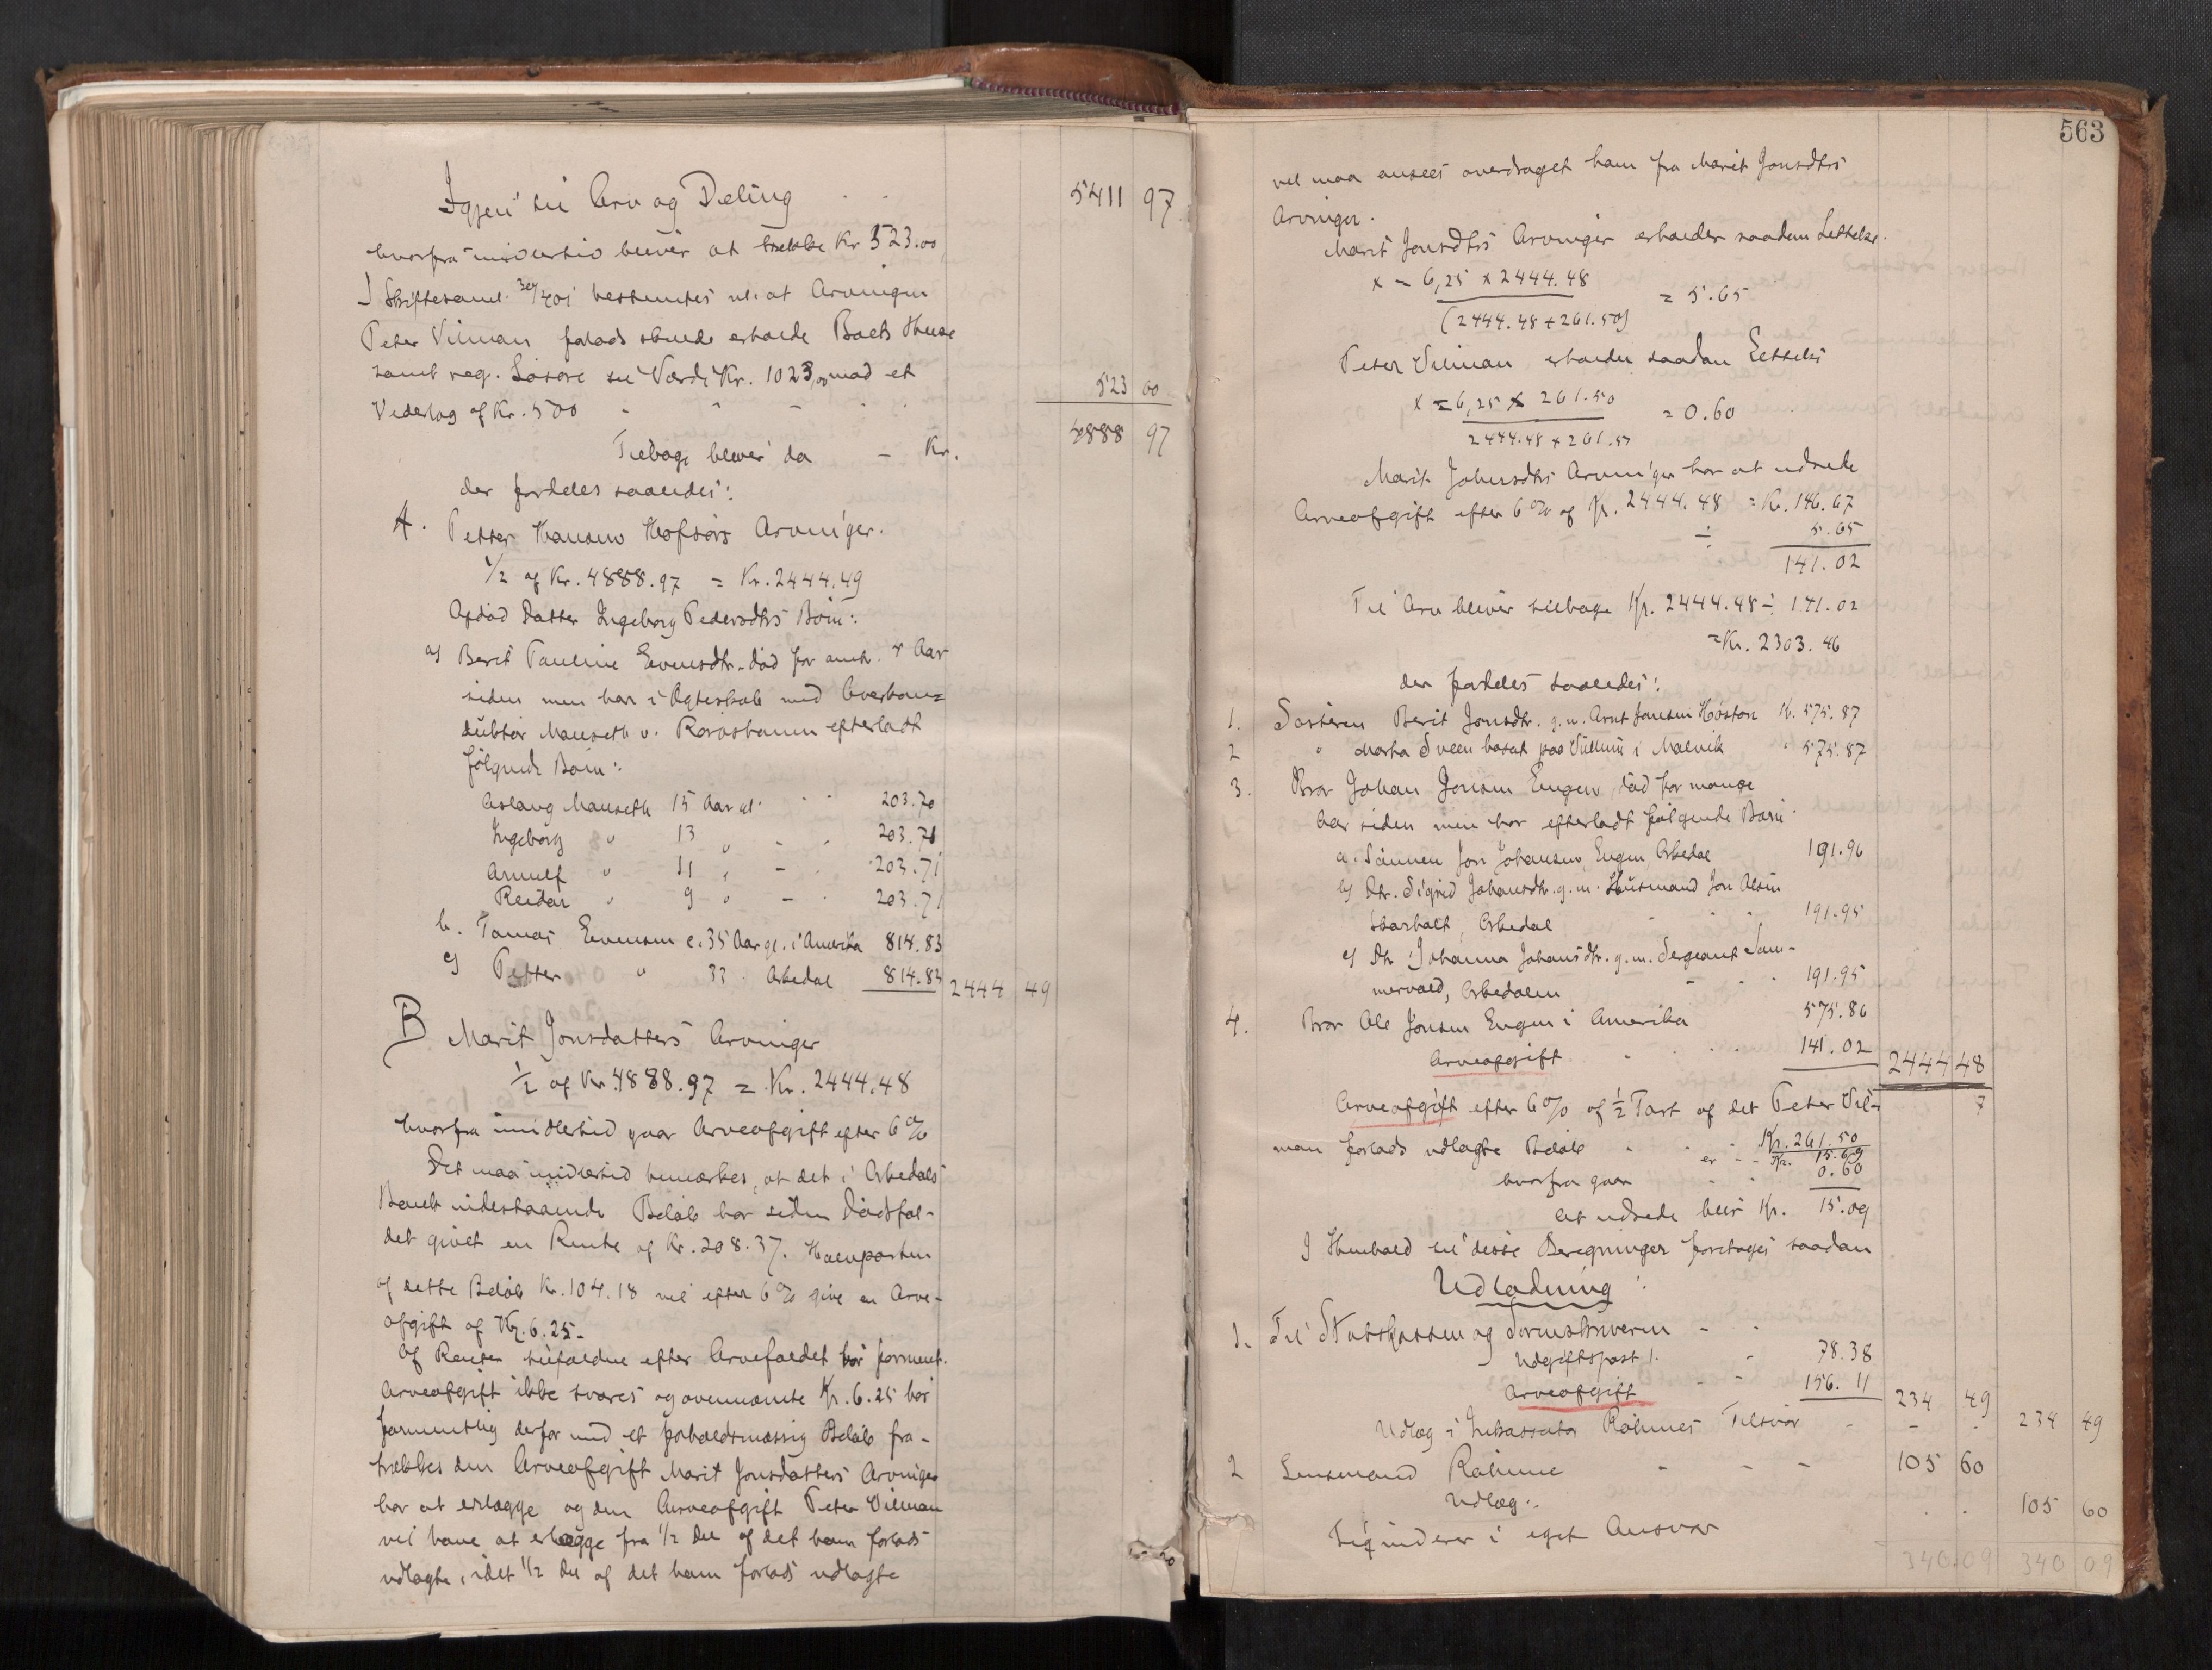 Igjen til Arv og Deling - - 5411 97
hvorfra imidlertid bliver at trække Kr 523.00
I Skiftesaml. 30/4 01 bestemtes nl. at Arvingen
Peter Vilman forlods skulde erholde Back Huse
samt reg. Løsøre til Værdi Kr. 1023,00 mod et
Vederlag af Kr. 500 - - - - 523 00
Tilbage bliver da - Kr. 4888 97
der fordeles saaledes:
A. Petter Hansens Hofsørs Arvinger.
1/2 af Kr. 4888.97 = Kr. 2444.49
Afdød Datter Ingeborg Pedersdtrs Børn:
a) Berit Pauline Evensdtr. død for omtr. 4 Aar
siden men har i Ægteskab med Overkon=
duktør Manseth v. Rørosbanen efterladt
følgende Børn:
Aslaug Manseth 15 Aar gl. - - 203.70
Ingeborg " 13 " - - 203.71
Arnulf " 11 " - - 203.71
Reidar " 9 " - - 203.71
b. Tomas Evensen c. 35 Aar gl. i Amerika 814.83
c) Petter " 33 Orkedal 814.83 2444 49
B Marit Jonsdatters Arvinger
1/2 af Kr. 4888.97 = Kr. 2444.48
hvorfra imidlertid gaar Arveafgift efter 6 %
Det maa imidlertid bemærkes, at det i Orkedals
Bank indestaaende Beløb har siden Dødsfal-
det givet en Rente af Kr. 208.37. Halvparten
af dette Beløb Kr. 104.18 vil efter 6 % give en Arve-
afgift af Kr. 6.25.
Af Renter tilfaldne efter Arvefaldet bør forment.
Arveafgift ikke svares og ovennævnte Kr. 6.25 bør
formentlig derfor med et forholdsmæssig Beløb fra-
trækkes den Arveafgift Marit Jonsdatters Arvinger
har at erlægge og den Arveafgift Peter Vilman
vil have at erlægge fra 1/2 Del af det ham forlods
udlagte, idet 1/2 Del af det ham forlods udlagte
563
vel maa ansees overdraget ham fra Marit Jonsdtrs
Arvinger.
Marit Jonsdtrs Arvinger erholder saadan Lettelse.
x = 6,25 x 2444.48 = 5.65
(2444.48 + 261.50)
Peter Vilman erholder saadan Lettelse
x = 6,25 x 261.50 = 0.60
2444.48 + 261.50
Marit Johnsdtrs Arvinger har at udrede
Arveafgift efter 6 % af Kr. 2444.48 = Kr. 146.67
÷ 5.65
141.02
Til Arv bliver tilbage Kr. 2444.48 ÷ 141.02
= Kr. 2303.46
der fordeles saaledes:
1. Søsteren Berit Jonsdtr. g.m. Arnt Jonsen Høston Kr. 575.87
2 " Marta Sveen bosat paa i Malvik " 575.87
3. Bror Johan Jonsen Engen, død for mange
Aar siden men har efterladt følgende Børn
a. Sønnen Jon Johansen Engen Orkedal 191.96
b) Dtr. Sigrid Johansdtr. g.m. Husmand Jon Olsen
, Orkedal - - - 191.95
c) Dtr. Johanna Johansdtr. g.m. Sergeant Som-
mervold, Orkedalen - - - 191.95
4. Bror Ole Jonsen Engen i Amerika 575.86
Arveafgift - - - 141.02 2444 48
Arveafgift efter 6 % af 1/2 Part af det Peter Vil- 7
man forlods udlagte Beløb - - - Kr. 261.50
er - - Kr. 15.69
hvorfra gaar - - 0.60
At udrede blir Kr. 15.09
I Henhold til disse Beregninger foretages saadan
Udlodning:
1. Til Statskassen og Sorenskriveren - -
Udgiftspost 1. - 78.38
Arveafgift - - 156.11 234 49
Udlæg i Inkassator Rohmes Tilsvar - - - 234 49
2 Lensmand Rohme - - - 105 60
Udlæg:
Liqviderer i eget Ansvar - - 105 60
340.09 340 09